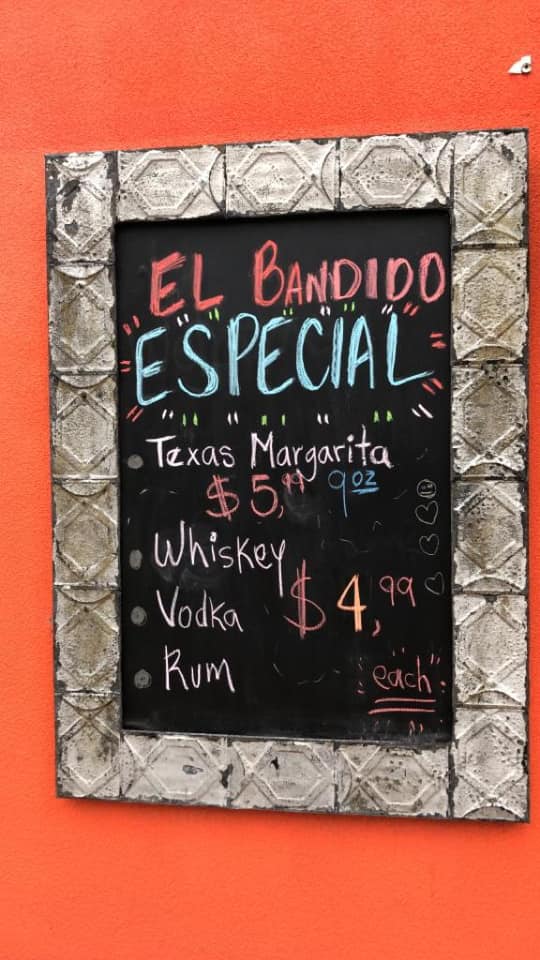 EL BANDIDO
ESPECIAL
Texas Margarita
$5,99 9oz
Whiskey
Vodka $4,99
Rum each